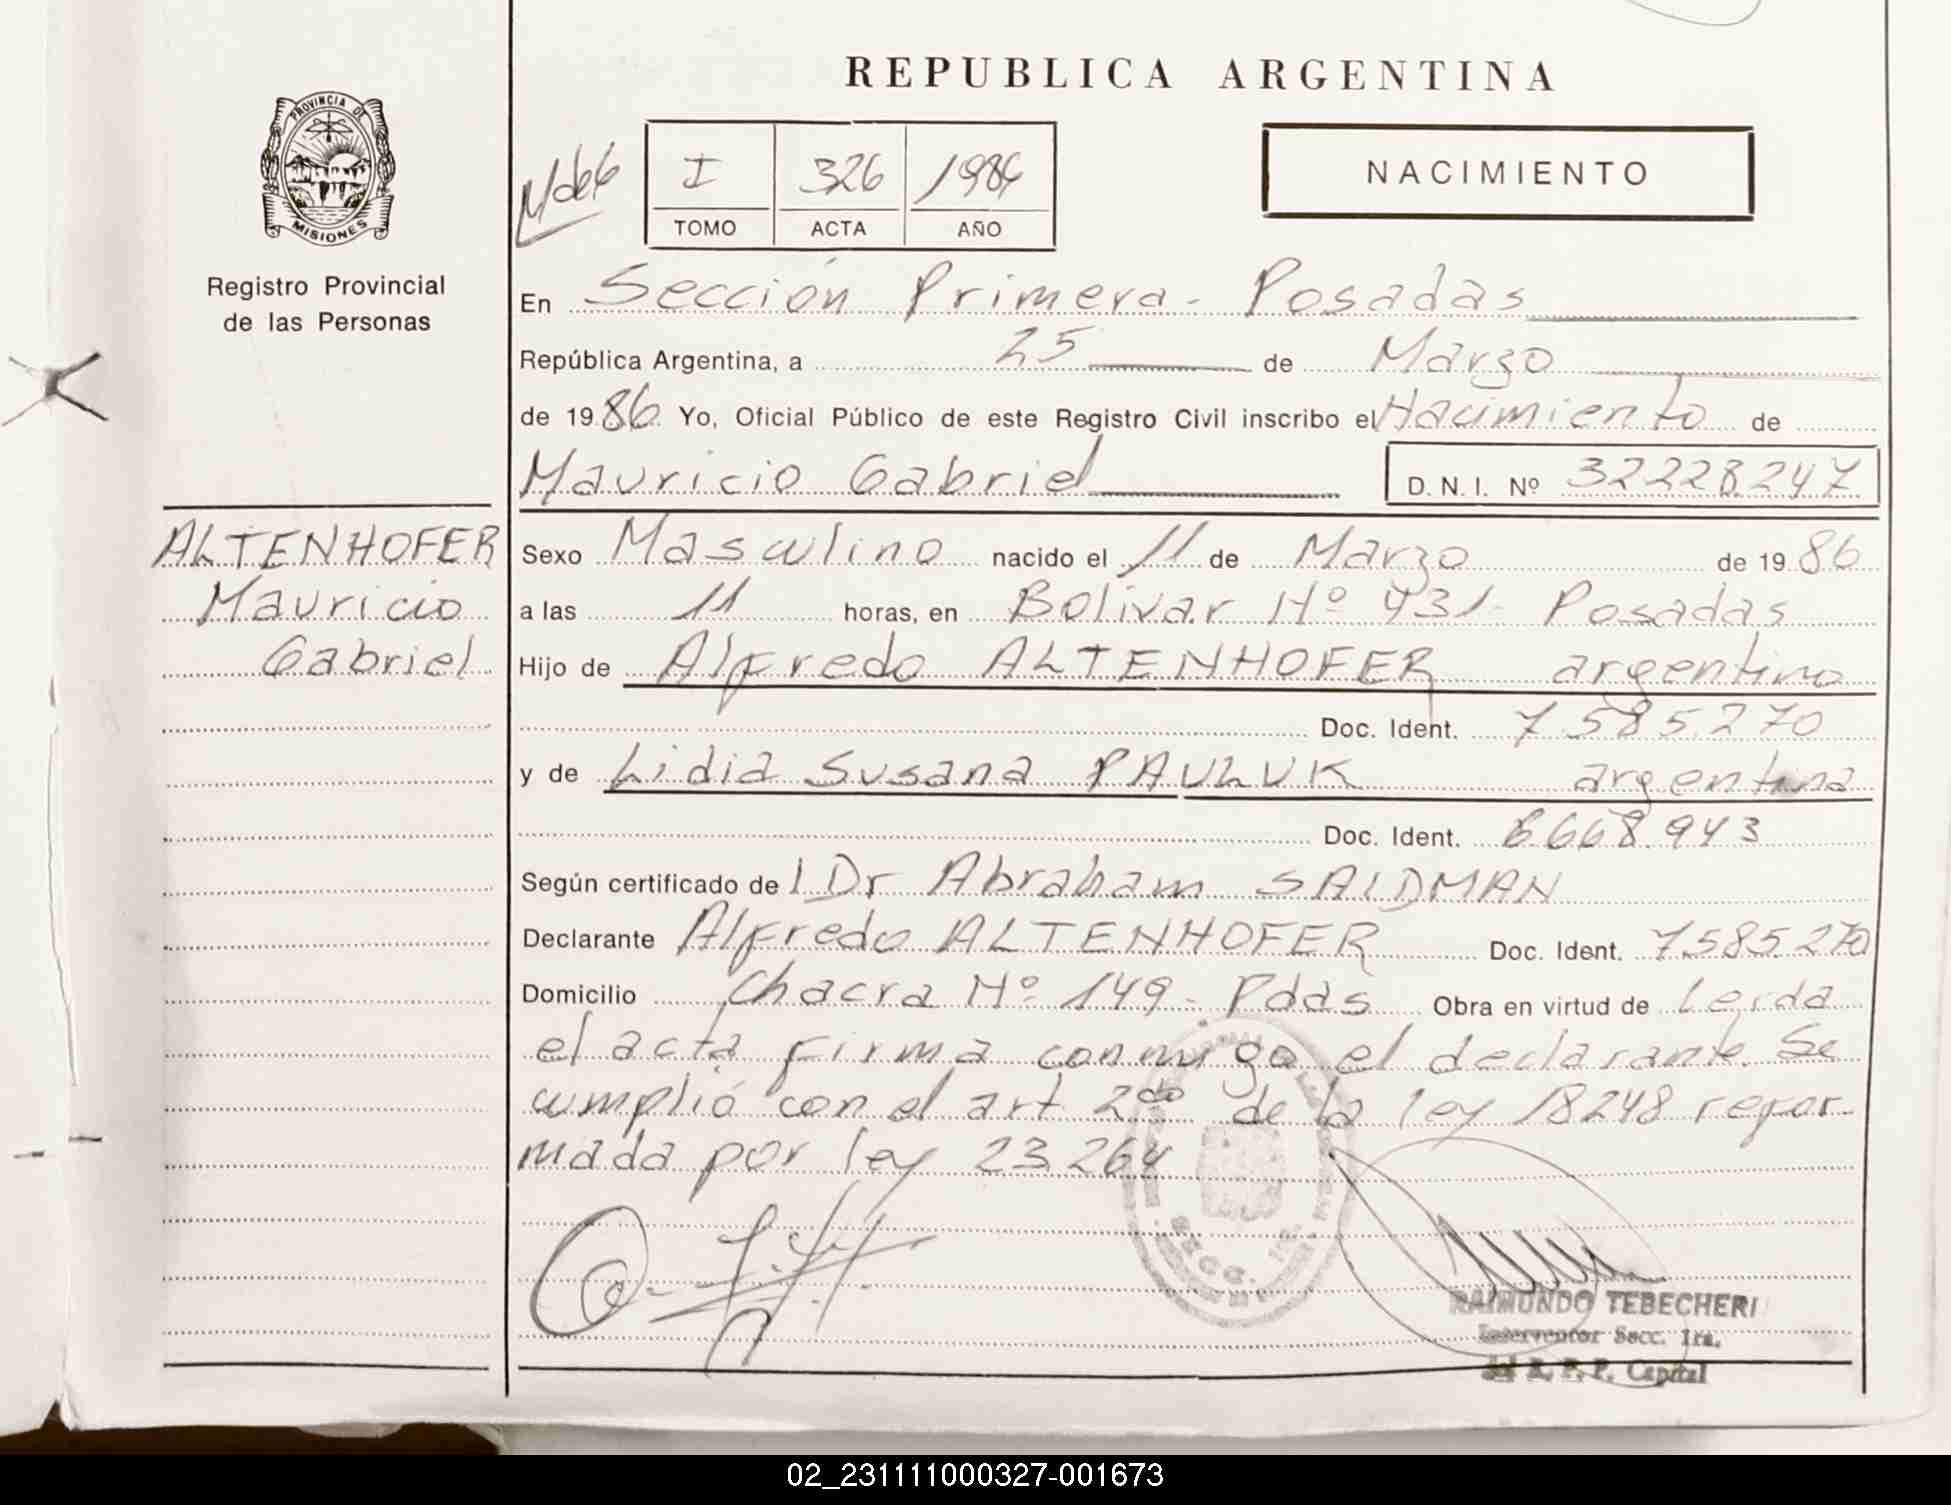 REPUBLICA ARGENTINA
PROVINCIA DE
MISIONES
Registro Provincial
de las Personas
I 326 1986
TOMO ACTA AÑO
NACIMIENTO
En Sección Primera - Posadas
República Argentina, a 25 de Marzo
de 1986 Yo, Oficial Público de este Registro Civil inscribo el Nacimiento de
Mauricio Gabriel D.N.I. Nº 32228.247
ALTENHOFER
Mauricio
Gabriel
Sexo Masculino nacido el 11 de Marzo de 1986
a las 11 horas, en Bolivar Nº 431- Posadas
Hijo de Alfredo ALTENHOFER argentino
Doc. Ident. 7.585.270
y de Lidia Susana PAULUK argentina
Doc. Ident. 6.668.943
Según certificado del Dr Abraham SALDMAN
Declarante Alfredo ALTENHOFER Doc. Ident. 7.585.270
Domicilio Chacra Nº 149 - Pdas Obra en virtud de Leida
el acta firma conmigo el declarante. Se
cumplió con el art 2do de la ley 18248 refor-
mada por ley 23.264
SECC. 1ra.
RAIMUNDO TEBECHERI
Interventor Secc. 1ra.
del R. P. P. Capital
02_231111000327-001673